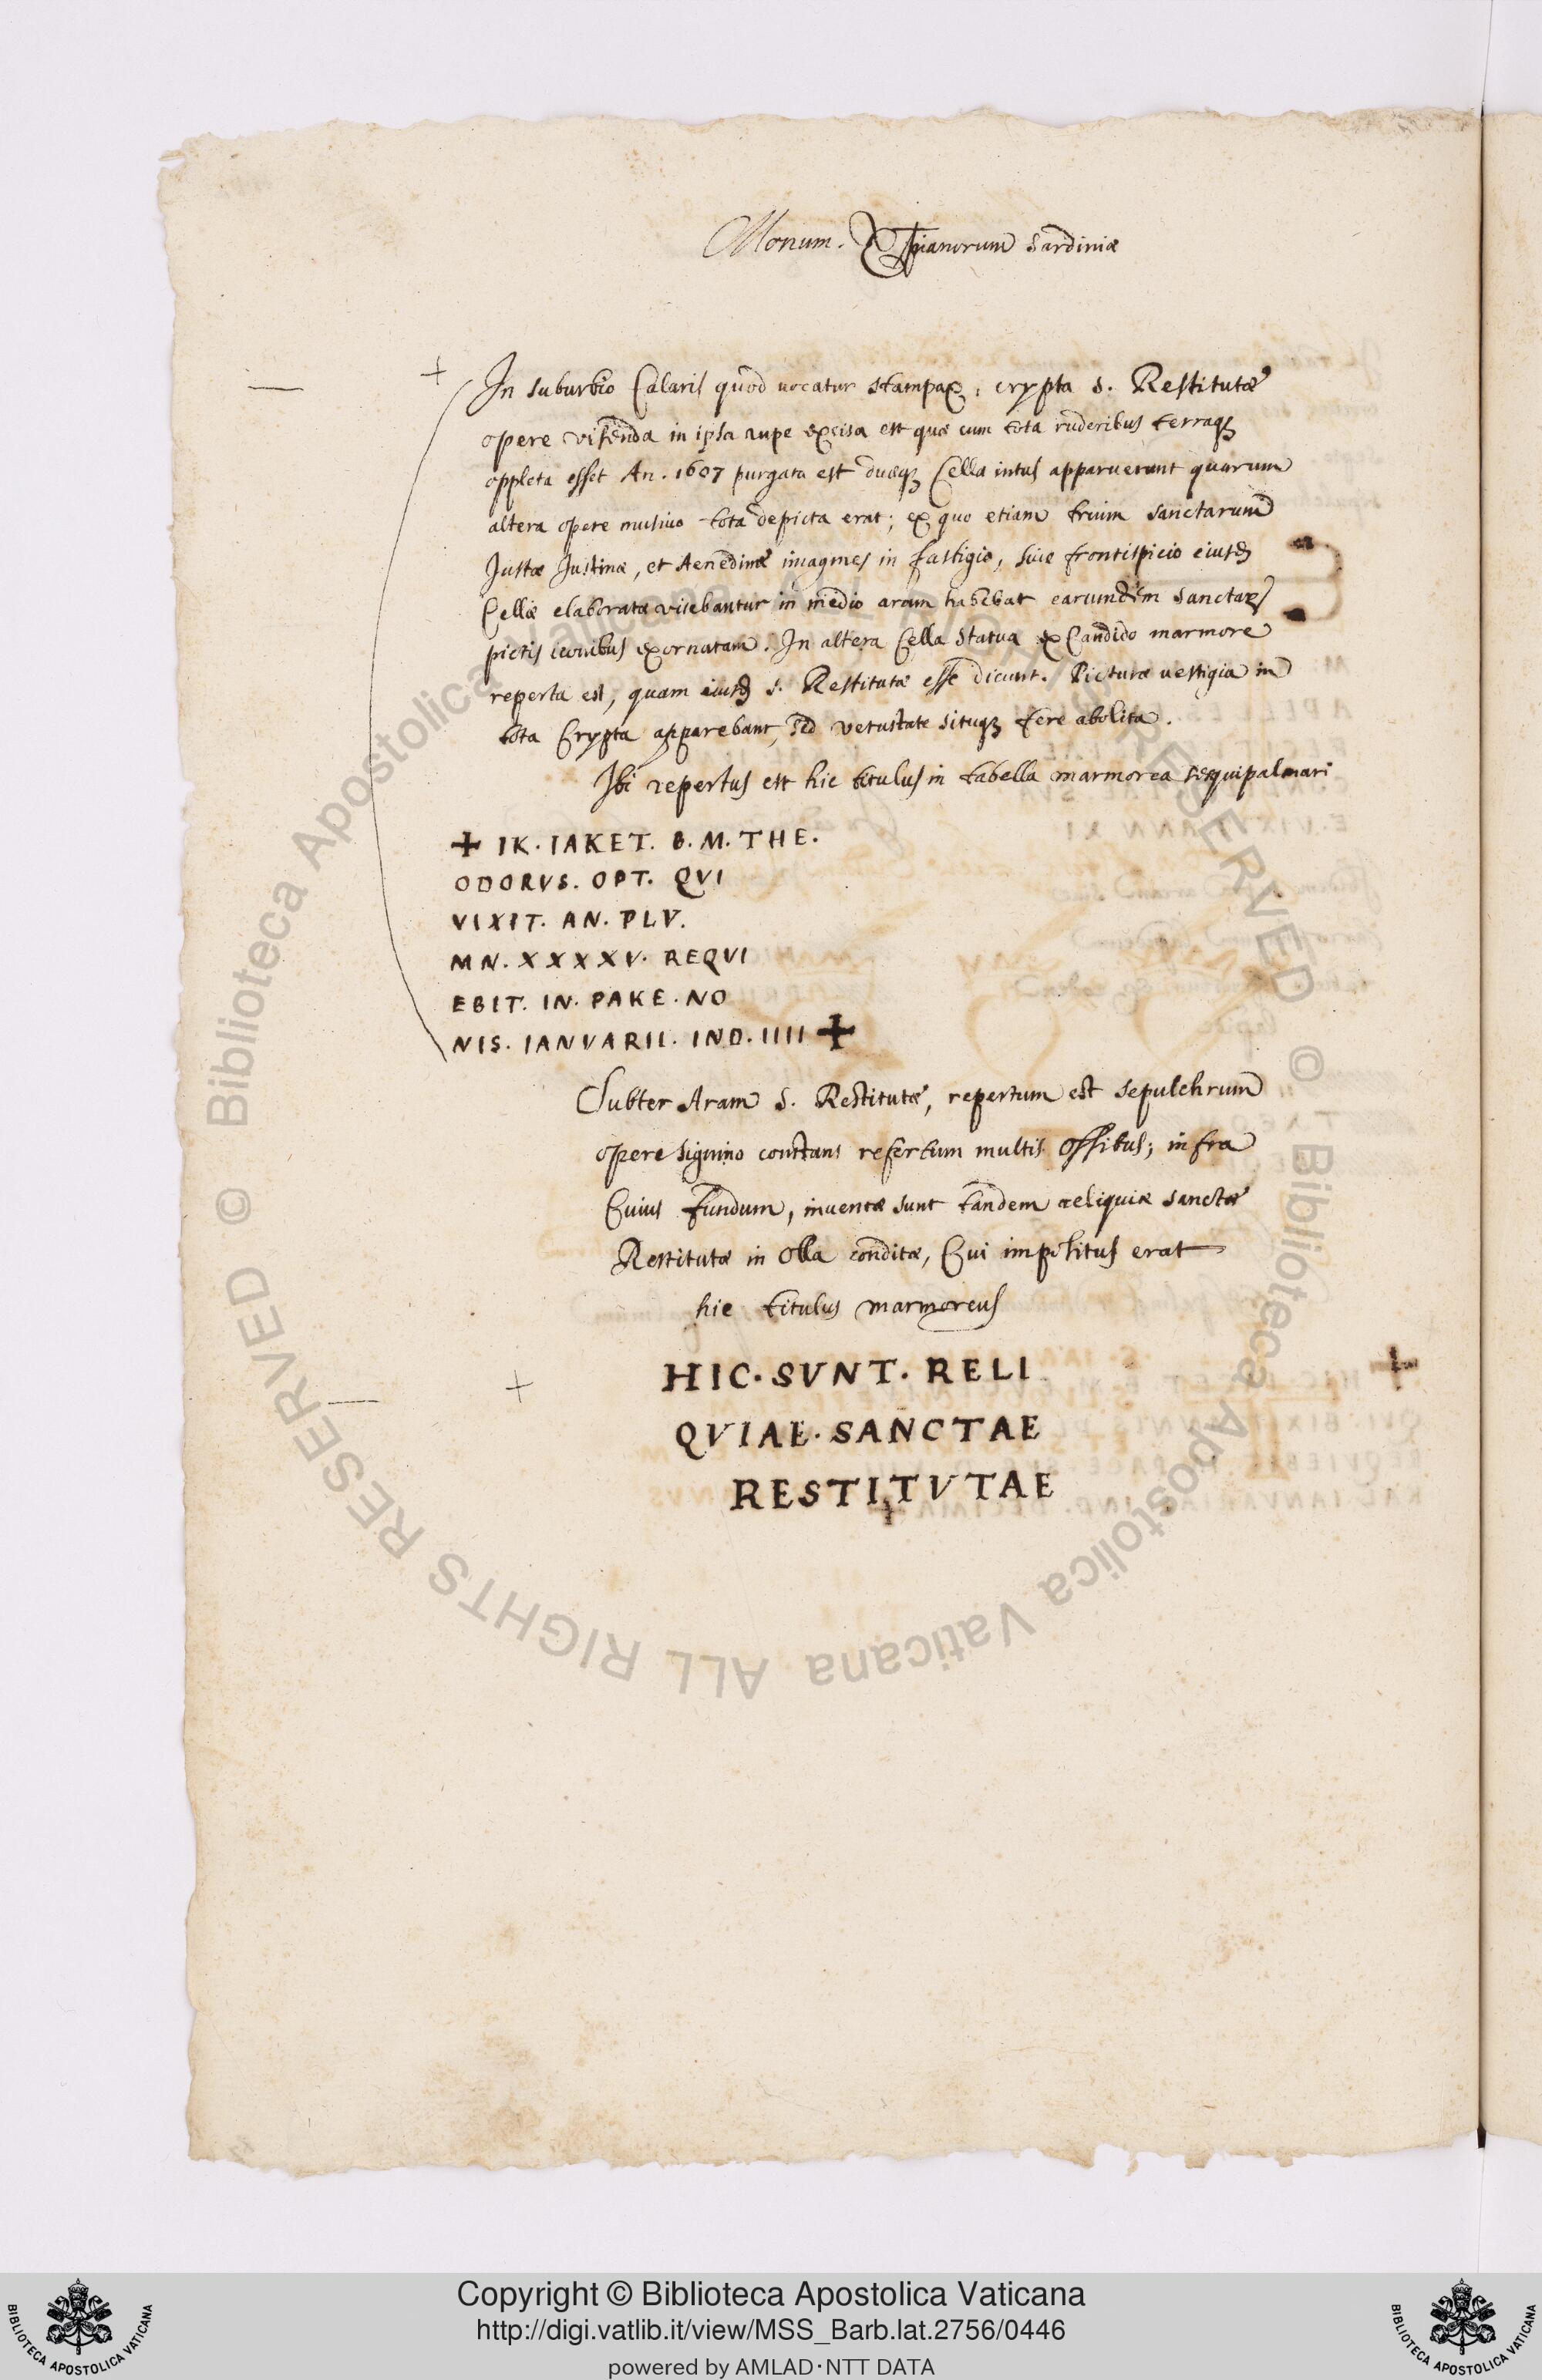 Monum. Xpianorum Sardiniæ
In suburbio Calaris quod vocatur stampax, crypta S. Restitutæ
opere visenda in ipsa rupe excisa est quæ cum tota ruderibus terraq;
oppleta esset An. 1607 purgata est duæq; Cellæ intus apparuerunt quarum
altera opere musivo tota depicta erat; ex quo etiam trium sanctarum
Justæ Justinæ, et Aenedinæ imagines in fastigio, sive frontispicio eiusd
Cellæ elaboratæ visebantur in medio aram habebat earundem sanctar
pictis iconibus exornatam. In altera Cella Statua ex Candido marmore
reperta est, quam eiusd S. Restitutæ esse dicunt. Picturæ vestigia in
tota Crypta apparebant, sed vetustate situq; fere abolita.
Ibi repertus est hic titulus in tabella marmorea sesquipalmari
+ IK. IAKET. B. M. THE.
ODORVS. OPT. QVI
VIXIT. AN. PLV.
MN. XXXXV. REQVI
EBIT. IN. PAKE. NO
NIS. IANVARII. IND. IIII +
Subter Aram S. Restitutæ, repertum est sepulchrum
opere signino constans refertum multis ossibus; infra
Cuius fundum, inventæ sunt tandem reliquiæ sanctæ
Restitutæ in olla conditæ, Cui impositus erat
hic titulus marmoreus
HIC. SVNT. RELI
QVIAE. SANCTAE
RESTITVTAE
© Biblioteca Apostolica Vaticana ALL RIGHTS RESERVED © Biblioteca Apostolica Vaticana ALL RIGHTS RESERVED
BIBLIOTECA APOSTOLICA VATICANA
Copyright © Biblioteca Apostolica Vaticana
http://digi.vatlib.it/view/MSS_Barb.lat.2756/0446
powered by AMLAD·NTT DATA
BIBLIOTECA APOSTOLICA VATICANA